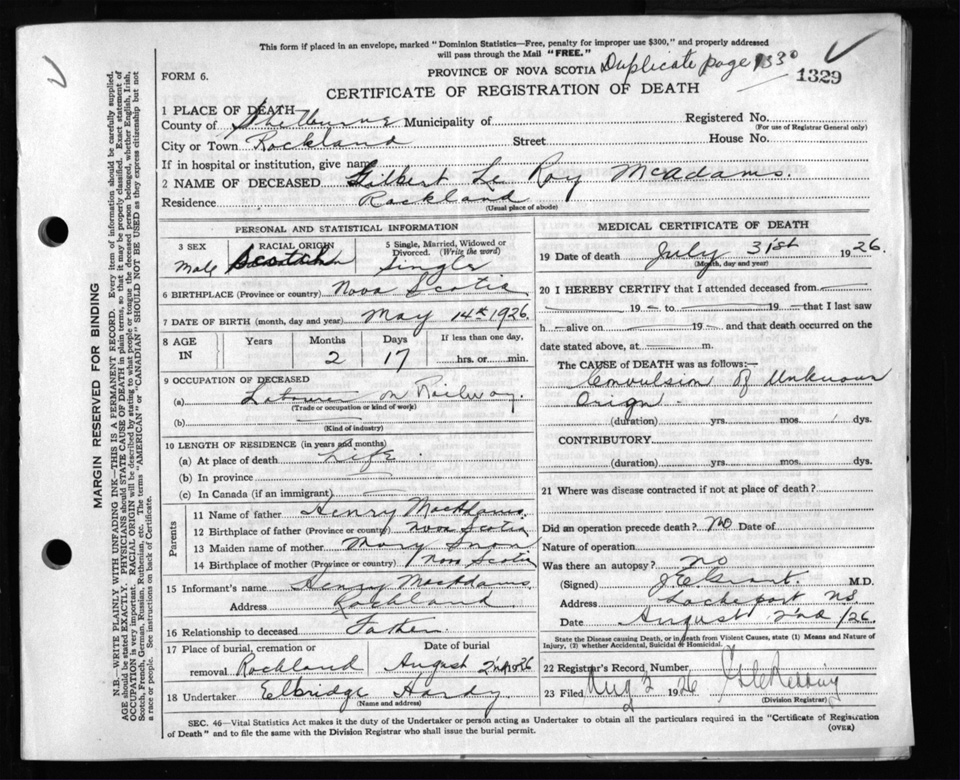 This form if placed in an envelope, marked "Dominion Statistics—Free, penalty for improper use $300," and properly addressed
will pass through the Mail "FREE."
Duplicate page 1330
FORM 6.
PROVINCE OF NOVA SCOTIA
1329
CERTIFICATE OF REGISTRATION OF DEATH
MARGIN RESERVED FOR BINDING
N.B.—WRITE PLAINLY WITH UNFADING INK—THIS IS A PERMANENT RECORD. Every item of information should be carefully supplied.
AGE should be stated EXACTLY. PHYSICIANS should STATE CAUSE OF DEATH in plain terms, so that it may be properly classified. Exact statement of
OCCUPATION is very important. RACIAL ORIGIN will be described by stating to what people or tongue the deceased person belonged, whether English, Irish,
Scotch, French, German, Russian, Ruthenian, etc. The terms "AMERICAN" or "CANADIAN" SHOULD NOT BE USED as they express citizenship but not
a race or people. See instructions on back of Certificate.
1 PLACE OF DEATH
County of Shelburne Municipality of Registered No.
(For use of Registrar General only)
City or Town Rockland Street House No.
If in hospital or institution, give name
2 NAME OF DECEASED Gilbert Le Roy McAdams.
Residence Rockland
(Usual place of abode)
PERSONAL AND STATISTICAL INFORMATION
3 SEX Male
RACIAL ORIGIN Scotch
5 Single, Married, Widowed or
Divorced. (Write the word)
Single
6 BIRTHPLACE (Province or country) Nova Scotia
7 DATE OF BIRTH (month, day and year) May 14th 1926
8 AGE IN Years Months 2 Days 17 If less than one day, hrs. or min.
9 OCCUPATION OF DECEASED
(a) Labourer on Railway.
(Trade or occupation or kind of work)
(b)
(Kind of industry)
10 LENGTH OF RESIDENCE (in years and months)
(a) At place of death Life
(b) In province
(c) In Canada (if an immigrant)
Parents
11 Name of father Henry MacAdams.
12 Birthplace of father (Province or country) Nova Scotia
13 Maiden name of mother Mary Snow
14 Birthplace of mother (Province or country) Nova Scotia
15 Informant's name Henry MacAdams.
Address Rockland.
16 Relationship to deceased Father
17 Place of burial, cremation or
removal Rockland
Date of burial
August 2nd 1926
18 Undertaker Elbridge Hardy
(Name and address)
MEDICAL CERTIFICATE OF DEATH
19 Date of death July 31st 1926.
(Month, day and year)
20 I HEREBY CERTIFY that I attended deceased from
19 to 19 that I last saw
h alive on 19 and that death occurred on the
date stated above, at m.
The CAUSE OF DEATH was as follows:—
Convulsion of Unknown
Orign
(duration) yrs. mos. 1 dys.
CONTRIBUTORY
(duration) yrs. mos. dys.
21 Where was disease contracted if not at place of death?
Did an operation precede death? No Date of
Nature of operation
Was there an autopsy? no
(Signed) M.D.
Address Lockeport NS
Date August 2nd /26.
State the Disease causing Death, or in death from Violent Causes, state (1) Means and Nature of
Injury, (2) whether Accidental, Suicidal or Homicidal.
22 Registrar's Record, Number
23 Filed Aug 2 1926
(Division Registrar)
SEC. 46—Vital Statistics Act makes it the duty of the Undertaker or person acting as Undertaker to obtain all the particulars required in the "Certificate of Registration
of Death" and to file the same with the Division Registrar who shall issue the burial permit.
(OVER)